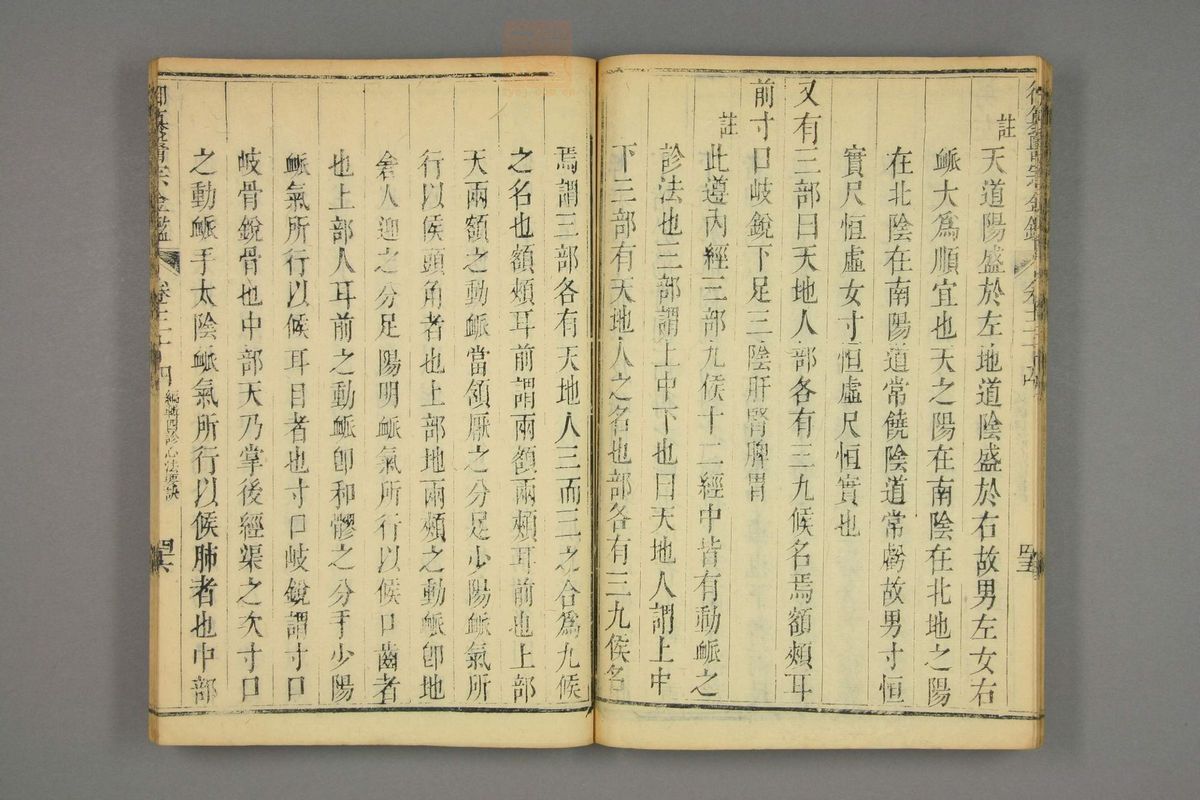 註
天道陽盛於左地道陰盛於右故男左女右
衇大爲順宜也天之陽在南陰在北地之陽
在北陰在南陽道常饒陰道常虧故男寸恒
實尺恒虛女寸恒虛尺恒實也
又有三部曰天地人部各有三九候名焉額頰耳
前寸口岐銳下足三陰肝腎脾胃
註
此遵內經三部九候十二經中皆有動衇之
診法也三部謂上中下也曰天地人謂上中
下三部有天地人之名也部各有三九候名
焉謂三部各有天地人三而三之合爲九候
之名也額頰耳前謂兩額兩頰耳前也上部
天兩額之動衇當頷厭之分足少陽衇氣所
行以候頭角者也上部地兩頰之動衇卽地
倉人迎之分足陽明衇氣所行以候口齒者
也上部人耳前之動衇卽和髎之分手少陽
衇氣所行以候耳目者也寸口岐銳謂寸口
岐骨銳骨也中部天乃掌後經渠之次寸口
之動衇手太陰衇氣所行以候肺者也中部
御纂醫宗金鑑
編輯四診心法要訣